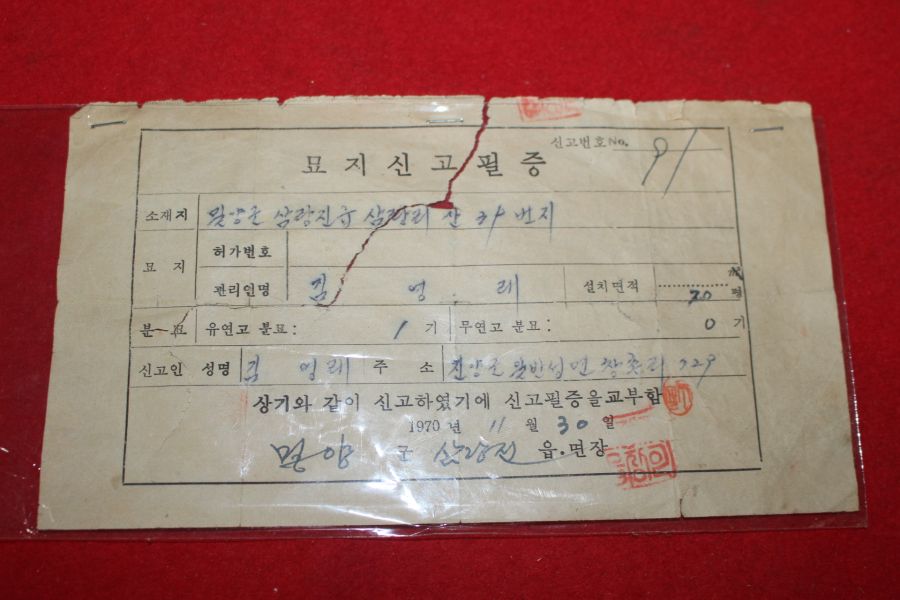 신고번호 No. 91
묘지신고필증
소재지 밀양군 삼랑진읍 삼랑리 산 번지
묘지 허가번호
관리인명 김영래 설치면적 70 평
분묘 유연고 분묘: 1기 무연고 분묘: 0기
신고인 성명 김영래 주소 진양군 일반성면 창촌리 729
상기와 같이 신고하였기에 신고필증을 교부함
1970년 11월 30일
밀양군 삼랑진 읍.면장